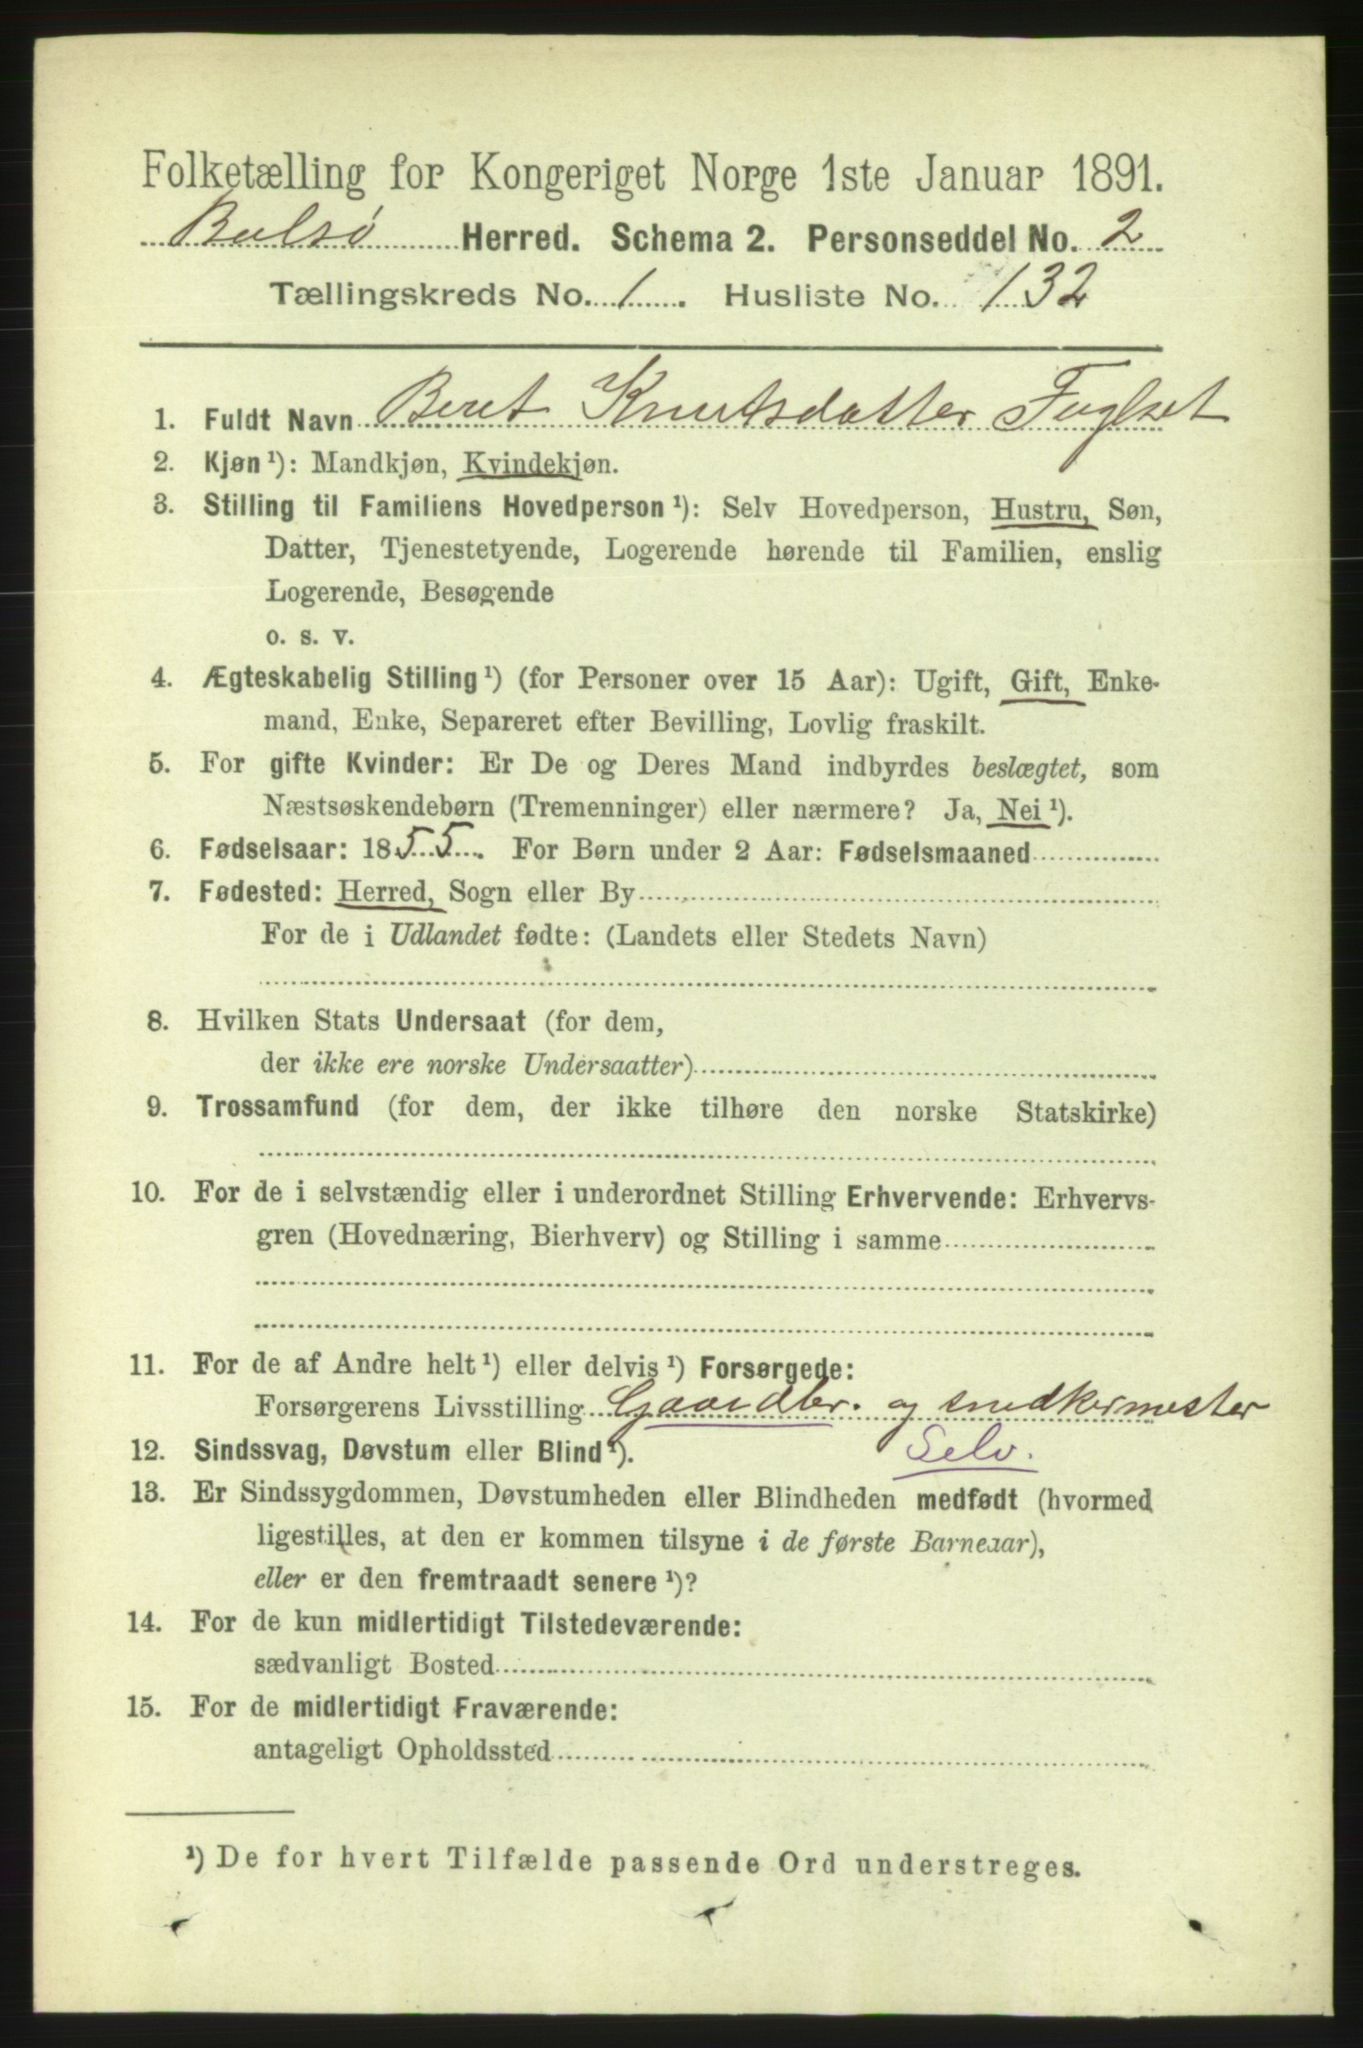 Folketælling for Kongeriget Norge 1ste Januar 1891.
Bolsø Herred. Schema 2. Personseddel No. 2
Tællingskreds No. 1. Husliste No. 132
1. Fuldt Navn Beret Knutsdatter Fuglset
2. Kjøn¹): Mandkjøn, Kvindekjøn.
3. Stilling til Familiens Hovedperson¹): Selv Hovedperson, Hustru, Søn,
Datter, Tjenestetyende, Logerende hørende til Familien, enslig
Logerende, Besøgende
o. s. v.
4. Ægteskabelig Stilling¹) (for Personer over 15 Aar): Ugift, Gift, Enke-
mand, Enke, Separeret efter Bevilling, Lovlig fraskilt.
5. For gifte Kvinder: Er De og Deres Mand indbyrdes beslægtet, som
Næstsøskendebørn (Tremenninger) eller nærmere? Ja, Nei¹).
6. Fødselsaar: 1855. For Børn under 2 Aar: Fødselsmaaned
7. Fødested: Herred, Sogn eller By
For de i Udlandet fødte: (Landets eller Stedets Navn)
8. Hvilken Stats Undersaat (for dem,
der ikke ere norske Undersaatter)
9. Trossamfund (for dem, der ikke tilhøre den norske Statskirke)
10. For de i selvstændig eller i underordnet Stilling Erhvervende: Erhvervs-
gren (Hovednæring, Bierhverv) og Stilling i samme
11. For de af Andre helt¹) eller delvis¹) Forsørgede:
Forsørgerens Livsstilling Gaardbr. og snedkermester
12. Sindssvag, Døvstum eller Blind¹). Selv.
13. Er Sindssygdommen, Døvstumheden eller Blindheden medfødt (hvormed
ligestilles, at den er kommen tilsyne i de første Barneaar),
eller er den fremtraadt senere¹)?
14. For de kun midlertidigt Tilstedeværende:
sædvanligt Bosted
15. For de midlertidigt Fraværende:
antageligt Opholdssted
¹) De for hvert Tilfælde passende Ord understreges.